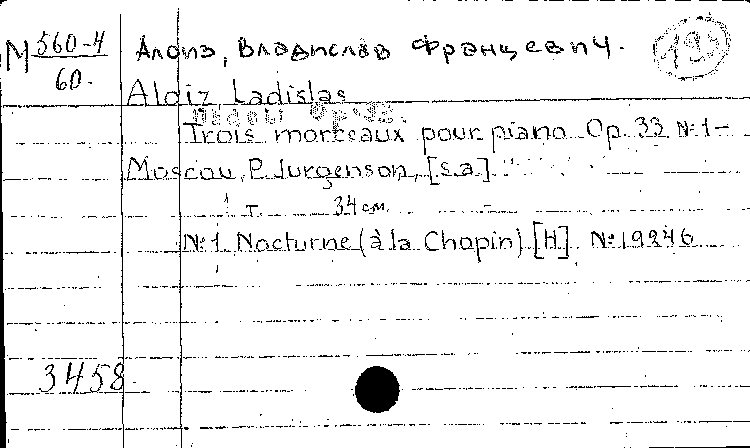 М 560-4
60.
Алоиз, Владислав Францевич.
Aloiz, Ladislas
Trois morceaux pour piano Op. 33 №1-
Moscou, P. Jurgenson, [s.a.]
т. 34 см.
№1 Nocturne (à la Chopin) [H] №19246
3458